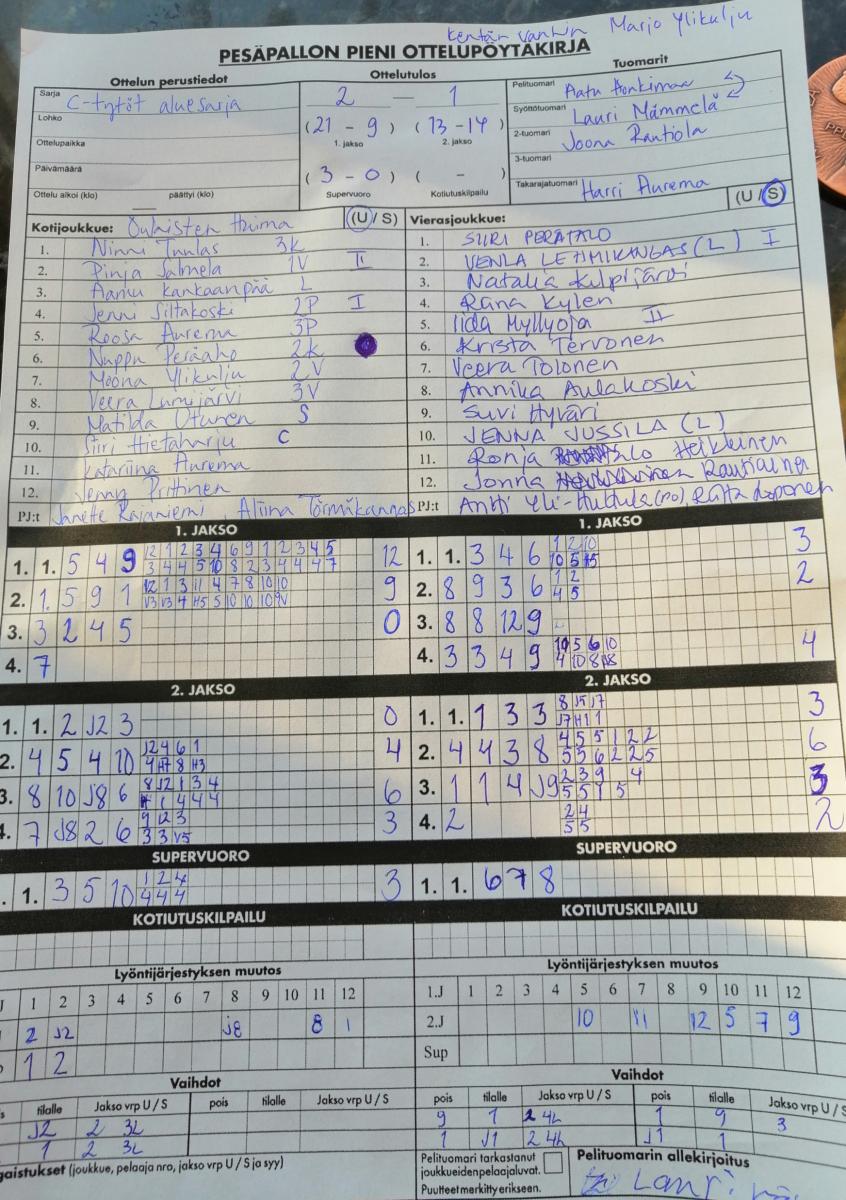 Kentän vanhin Marjo Ylikulju
PESÄPALLON PIENI OTTELUPÖYTÄKIRJA
Ottelun perustiedot Ottelutulos Tuomarit
Sarja C-tytöt aluesarja
2 — 1
Pelituomari Aatu Honkimaa
Lohko
(21 - 9) (13 - 14)
Syöttötuomari Lauri Mämmelä
Ottelupaikka
1. jakso 2. jakso
2-tuomari Joona Rautiola
Päivämäärä
(3 - 0) ( - )
3-tuomari
Ottelu alkoi (klo) päättyi (klo)
Supervuoro Kotiutuskilpailu
Takarajatuomari Harri Aurema
Kotijoukkue: Oulaisten Huima (U / S)
Vierasjoukkue: (U / S)
1. Ninni Tuulas 3K
2. Pinja Salmela 1V II
3. Aamu Kankaanpää L
4. Jenni Siltakoski 2P I
5. Roosa Aurema 3P
6. Nuppu Peräaho 2K
7. Moona Ylikulju 2V
8. Veera Lumijärvi 3V
9. Matilda Oturen S
10. Siiri Hietaharju C
11. Katariina Aurema
12. Jenny Prittinen
PJ:t Janette Rajaniemi, Aliina Törmäkangas
1. SIIRI PERÄTALO
2. VENLA LEHMIKANGAS (L) I
3. Natalia Kulpijärvi
4. Rana Kylen
5. Iida Myllyoja II
6. Krista Tervonen
7. Veera Tolonen
8. Annika Aulakoski
9. Suvi Hyväri
10. JENNA JUSSILA (L)
11. Ronja Heikkinen
12. Jonna Rautiainen
PJ:t Antti Yli-Huhtula (PO), Riitta Lapponen
1. JAKSO
1. 1. 5 4 9 12 1 2 3 4 6 9 1 2 3 4 5 12
3 4 4 5 10 8 2 3 4 4 4 7
2. 1 5 9 1 12 1 3 11 4 7 8 10 10 9
3. 3 2 4 5 0
4. 7
1. JAKSO
1. 1. 3 4 6 1 2 10 3
2. 8 9 3 6 1 2 2
4 5
3. 8 8 12 9
4. 3 3 4 9 10 5 6 10 4
2. JAKSO
1. 1. 2 J2 3 0
2. 4 5 4 10 J2 4 6 1 4
3. 8 10 J8 6 8 J2 1 3 4 6
4. 7 J8 2 6 9 12 3 3
3 3 V5
2. JAKSO
1. 1. 1 3 3 8 J5 J7 3
2. 4 4 3 8 4 5 5 1 2 2 6
5 5 6 2 2 5
3. 1 1 4 J9 2 3 9 4 3
5 5 1 5
4. 2 2 4 2
5 5
SUPERVUORO
1. 3 5 10 1 2 4 3
4 4 4
SUPERVUORO
1. 1. 6 7 8
KOTIUTUSKILPAILU
KOTIUTUSKILPAILU
Lyöntijärjestyksen muutos
1 2 3 4 5 6 7 8 9 10 11 12
2 J2 J8 8 1
1 2
Lyöntijärjestyksen muutos
1.J 1 2 3 4 5 6 7 8 9 10 11 12
2.J 10 11 12 5 7 9
Sup
Vaihdot
tilalle Jakso vrp U / S pois tilalle Jakso vrp U / S
J2 2 3L
1 2 3L
Vaihdot
pois tilalle Jakso vrp U / S pois tilalle Jakso vrp U / S
9 1 2 4L 1 9 3
1 J1 2 4L J1 1
gaistukset (joukkue, pelaaja nro, jakso vrp U / S ja syy)
Pelituomari tarkastanut joukkueidenpelaajaluvat.
Puutteet merkitty erikseen.
Pelituomarin allekirjoitus
Lauri